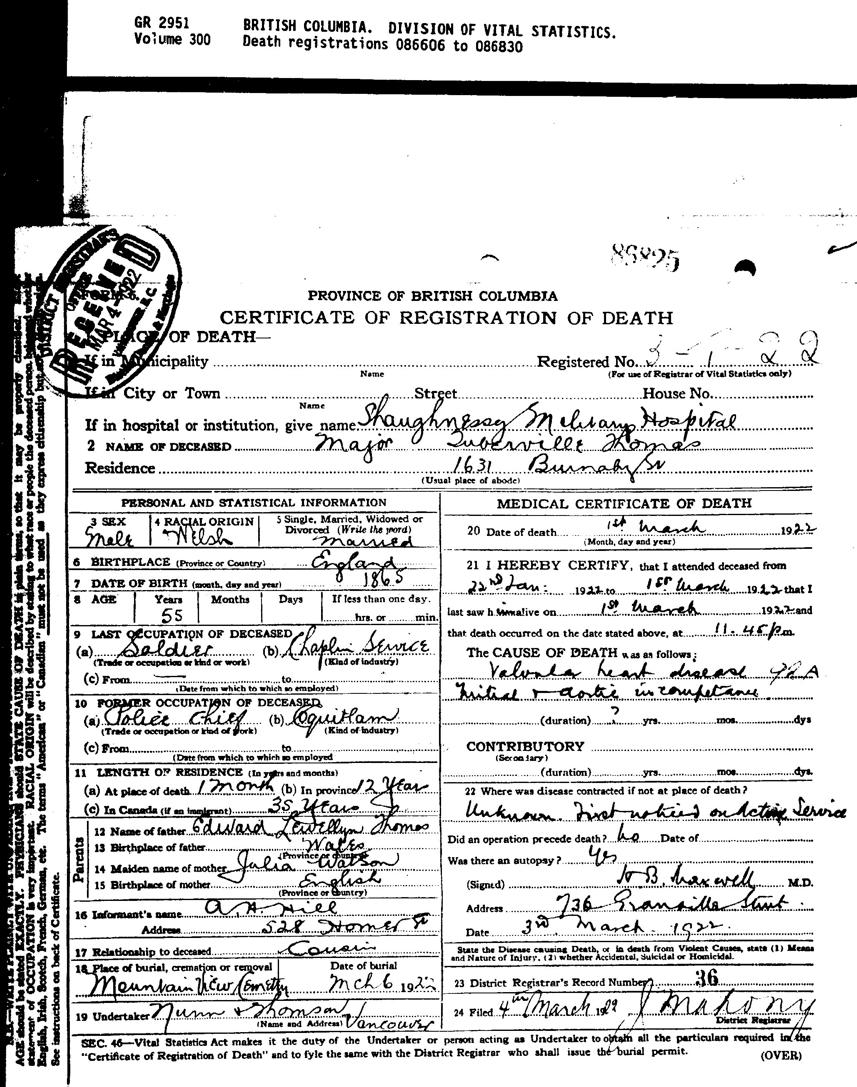 GR 2951 BRITISH COLUMBIA. DIVISION OF VITAL STATISTICS.
Volume 300 Death registrations 086606 to 086830
86825
DISTRICT REGISTRAR'S
RECEIVED
MAR 4 - 1922
PROVINCE OF BRITISH COLUMBIA
CERTIFICATE OF REGISTRATION OF DEATH
PLACE OF DEATH—
If in Municipality Registered No. 3-1-22
Name (For use of Registrar of Vital Statistics only)
If in City or Town Street House No.
Name
If in hospital or institution, give name Shaughnessy Military Hospital
2 NAME OF DECEASED Major Tuberville Thomas
Residence 1631 Burnaby St
(Usual place of abode)
PERSONAL AND STATISTICAL INFORMATION
3 SEX 4 RACIAL ORIGIN 5 Single, Married, Widowed or
Divorced (Write the word)
Male Welsh Married
6 BIRTHPLACE (Province or Country) England
7 DATE OF BIRTH (month, day and year) 1865
8 AGE Years Months Days If less than one day.
55 hrs. or min.
9 LAST OCCUPATION OF DECEASED
(a) Soldier (b) Chaplin Service
(Trade or occupation or kind or work) (Kind of industry)
(c) From to
(Date from which to which so employed)
10 FORMER OCCUPATION OF DECEASED
(a) Police Chief (b) Coquitlam
(Trade or occupation or kind of work) (Kind of industry)
(c) From to
(Date from which to which so employed
11 LENGTH OF RESIDENCE (In years and months)
(a) At place of death 1 Month (b) In province 12 Year
(c) In Canada (if an immigrant) 35 Years
Parents
12 Name of father Edward Lewellyn Thomas
13 Birthplace of father Wales
(Province or country)
14 Maiden name of mother Julia Watson
15 Birthplace of mother English
(Province or Country)
16 Informant's name A. H. Hill
Address 528 Homer St
17 Relationship to deceased Cousin
18 Place of burial, cremation or removal Date of burial
Mountain View Cemetry Mch 6 1922
19 Undertaker Nunn & Thomson
(Name and Address) Vancouver
MEDICAL CERTIFICATE OF DEATH
20 Date of death 1st March 1922
(Month, day and year)
21 I HEREBY CERTIFY, that I attended deceased from
22nd Jan: 1922 to 1st March 1922 that I
last saw him alive on 1st March 1922 and
that death occurred on the date stated above, at 11.45 pm
The CAUSE OF DEATH was as follows:
Valvula heart disease 92A
Mitral & aortic incompetance
(duration) ? yrs. mos. dys
CONTRIBUTORY
(Secondary)
(duration) yrs. mos. dys.
22 Where was disease contracted if not at place of death?
Unknown. First noticed on Active Service
Did an operation precede death? No Date of
Was there an autopsy? Yes
(Signed) H B. Maxwell M.D.
Address 736 Granville Street.
Date 3rd March 1922
State the Disease causing Death, or in death from Violent Causes, state (1) Means
and Nature of Injury, (2) whether Accidental, Suicidal or Homicidal.
23 District Registrar's Record Number 36
24 Filed 4th March 1922 J Mahony
District Registrar
SEC. 46—Vital Statistics Act makes it the duty of the Undertaker or person acting as Undertaker to obtain all the particulars required in the
"Certificate of Registration of Death" and to fyle the same with the District Registrar who shall issue the burial permit. (OVER)
AGE should be stated EXACTLY. PHYSICIANS should STATE CAUSE OF DEATH in plain terms, so that it may be properly classified.
statement of OCCUPATION is very important. RACIAL ORIGIN will be described by stating to what race or people the deceased person belonged whether
English, Irish, Scotch, French, German, etc. The terms "American" or "Canadian" must not be used as they express citizenship but not
See instructions on back of Certificate.